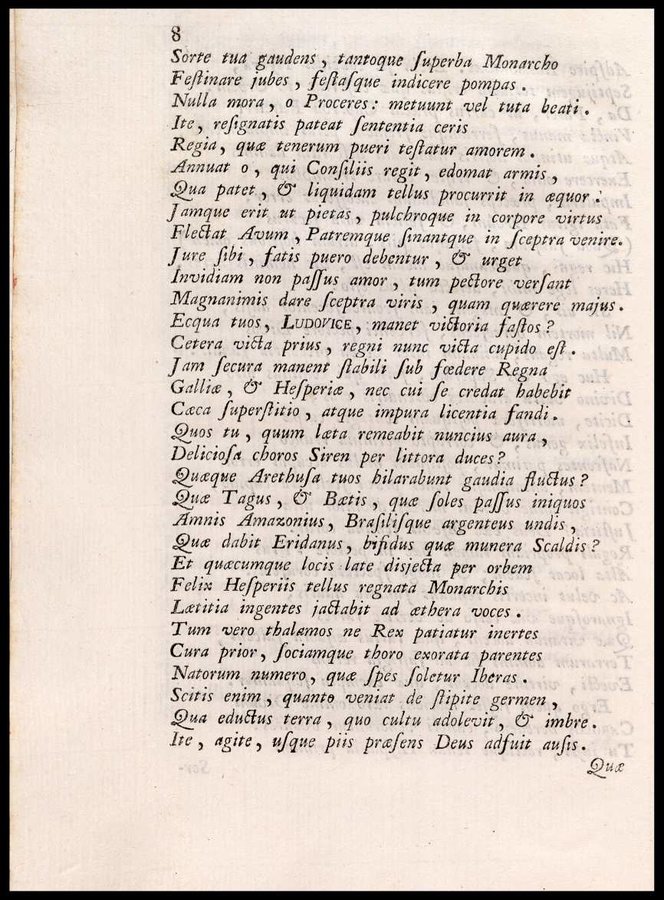 8
Sorte tua gaudens, tantoque ſuperba Monarcho
Feſtinare jubes, feſtaſque indicere pompas.
Nulla mora, o Proceres: metuunt vel tuta beati.
Ite, reſignatis pateat ſententia ceris
Regia, quæ tenerum pueri teſtatur amorem.
Annuat o, qui Conſiliis regit, edomat armis,
Qua patet, & liquidam tellus procurrit in æquor.
Jamque erit ut pietas, pulchroque in corpore virtus
Flectat Avum, Patremque ſinantque in ſceptra venire.
Jure ſibi, fatis puero debentur, & urget
Invidiam non paſſus amor, tum pectore verſant
Magnanimis dare ſceptra viris, quam quærere majus.
Ecqua tuos, LUDOVICE, manet victoria faſtos?
Cetera victa prius, regni nunc victa cupido eſt.
Jam ſecura manent ſtabili ſub fœdere Regna
Galliæ, & Heſperiæ, nec cui ſe credat habebit
Cæca ſuperſtitio, atque impura licentia fandi.
Quos tu, quum læta remeabit nuncius aura,
Delicioſa choros Siren per littora duces?
Quæque Arethuſa tuos hilarabunt gaudia fluctus?
Quæ Tagus, & Bætis, quæ ſoles paſſus iniquos
Amnis Amazonius, Braſiliſque argenteus undis,
Quæ dabit Eridanus, bifidus quæ munera Scaldis?
Et quæcumque locis late disjecta per orbem
Felix Heſperiis tellus regnata Monarchis
Lætitia ingentes jactabit ad æthera voces.
Tum vero thalamos ne Rex patiatur inertes
Cura prior, ſociamque thoro exorata parentes
Natorum numero, quæ ſpes ſoletur Iberas.
Scitis enim, quanto veniat de ſtipite germen,
Qua eductus terra, quo cultu adolevit, & imbre.
Ite, agite, uſque piis præſens Deus adfuit auſis.
Quæ